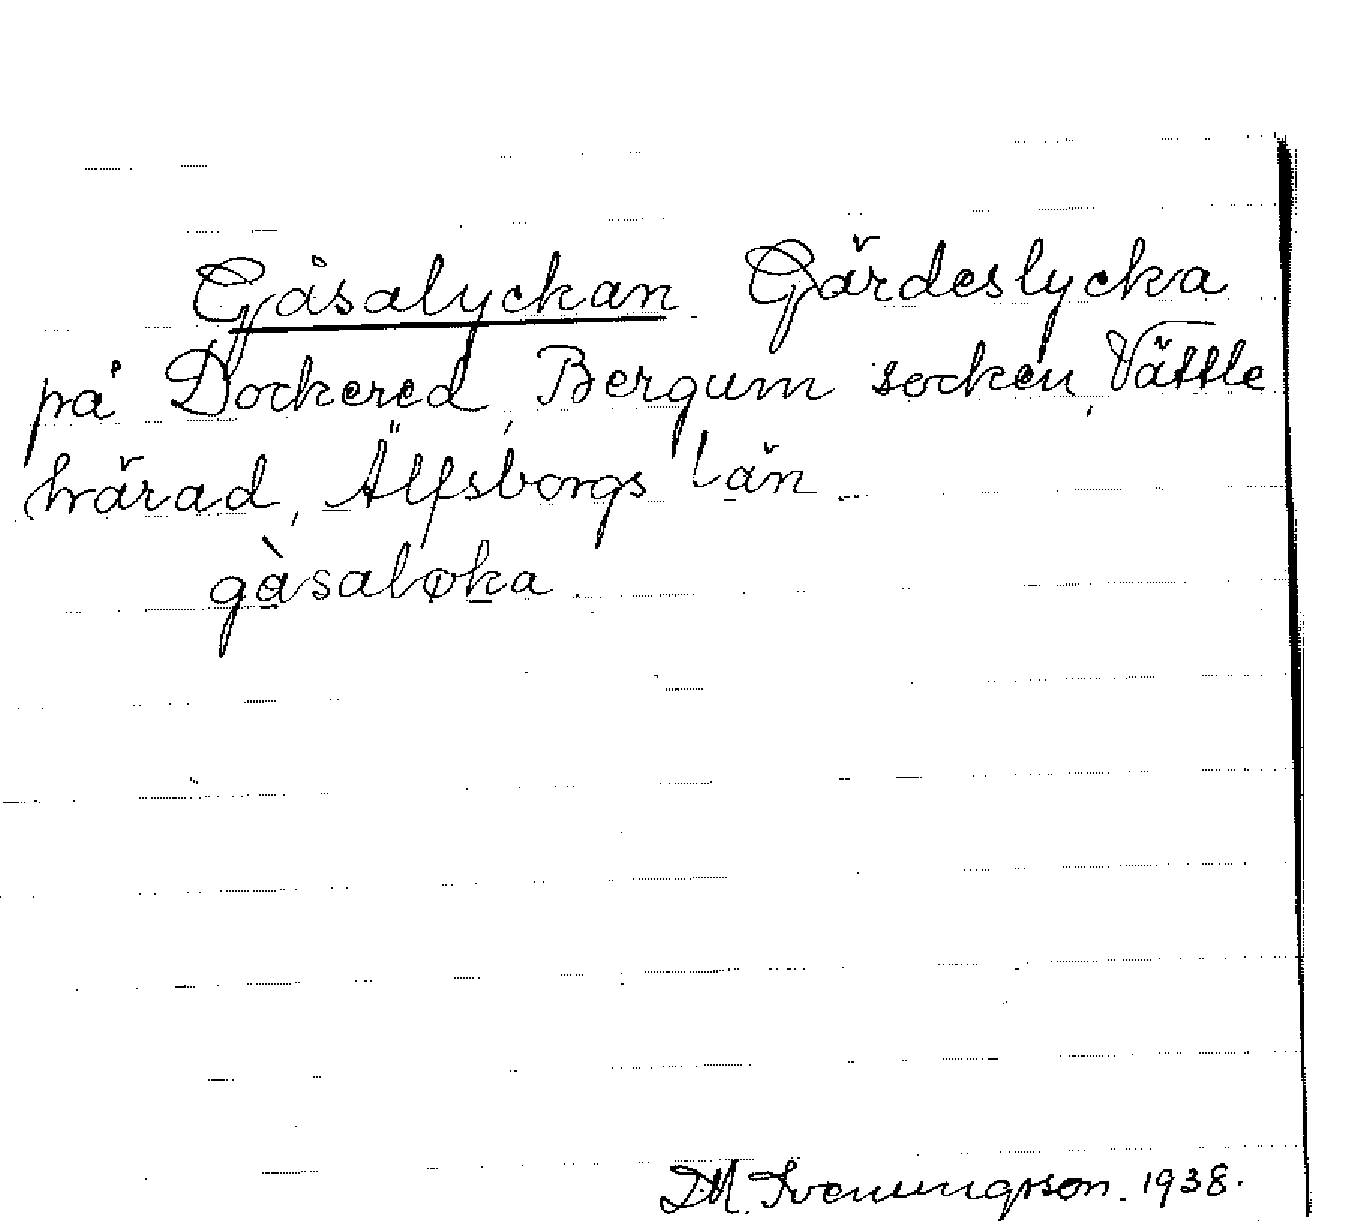 Gåsalyckan Gärdeslycka
på Dockered, Bergum socken, Vättle
härad, Älfsborgs län
gàsaløka
D.M. Svenungsson. 1938.